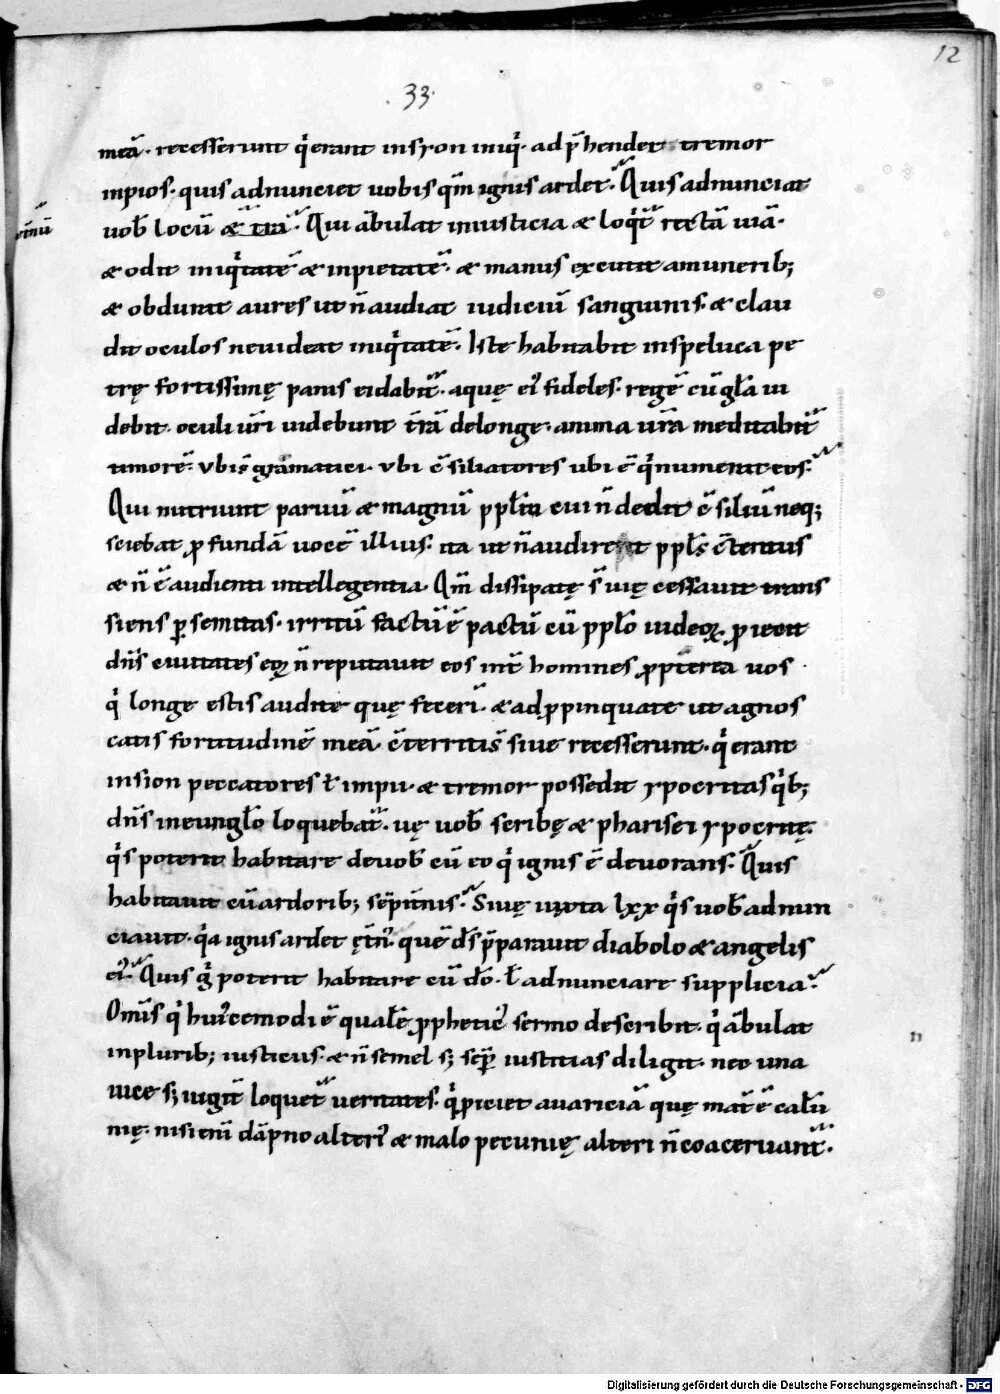 12
33.
meā. recesserunt q̇ erant insyon iniq̇. adp̄hendet tremor
inpios. quis adnunciet uobis qm̄ ignis ardet. Quis adnunciat
uob̄ locū æ t̄nū
etnū
Qui ābulat iniusticia æ loq̇t̄ rectā uiā.
æ odit iniq̇tatē æ inpietatē. æ manus excutit amunerib;
æ obdurat aures ut n̄ audiat iudiciū sanguinis. æ clau
dit oculos neuideat iniq̇tatē. Iste habitabit inspeluca pe
trę fortissimę panis eidabit̄. aquę ei' fideles. regē cū gl̄a ui
debit. oculi ur̄i uidebunt t̄rā delonge. anima ur̄a meditabit̄
timorē. vbis̄ gramatici. vbi ē siliatores ubi ē q̇ numerat eos.
Qui nutriunt paruū æ magnū ppl̄m cui n̄ dedit c̄siliū neq;
sciebat ꝓfundā uocē illius. ita ut n̄ audiret ppl̄s c̄temtus
æ n̄ ē audienti intellegentia. Qm̄ dissipatę s̄ uię cessauit trans
siens ꝑ semitas. irritū factū ē pactū cū ppl̄o iudeoꝝ. ꝓiecit
dn̄s ciuitates eoꝝ n̄ reputauit eos int̄ homines ꝓpterea uos
q̇ longe estis audite quę fecerī. æ adꝓpinquate ut agnos
catis fortitudinē meā. c̄territis̄ siue recesserunt. q̇ erant
insion peccatores ł impii. æ tremor possedit ypocritas q̇b;
dn̄s ineungl̄o loquebat̄. uę uob̄ scribę æ pharisei ypocritę.
q̇s poterit habitare deuob̄ cū eo q̇ ignis ē deuorans. Quis
habitauit cū ardorib; sēpit̄nis. Siuę iuxta lxx q̇s uob̄ adnun
ciauit. q̇a ignis ardet ęt̄n'. quē ds̄ p̄parauit diabolo æ angelis
ei'. Quis g̊ poterit habitare cū dō. ł adnunciare supplicia.
Om̄s q̇ hui'cemodi ē qualē ꝓphetic' sermo describit. q̇ ābulat
inplurib; iusticiis. æ n̄ semel s; sēp̄ iustitias diligit. nec una
uice s; iugit̄ loquet̄ ueritates. q̇ ꝓiciet auariciā quę mat̄ ē calū
nię. nisi enī dāpno alteri' æ malo pecunię alteri n̄ coaceruant̄.
n
Digitalisierung gefördert durch die Deutsche Forschungsgemeinschaft - DFG